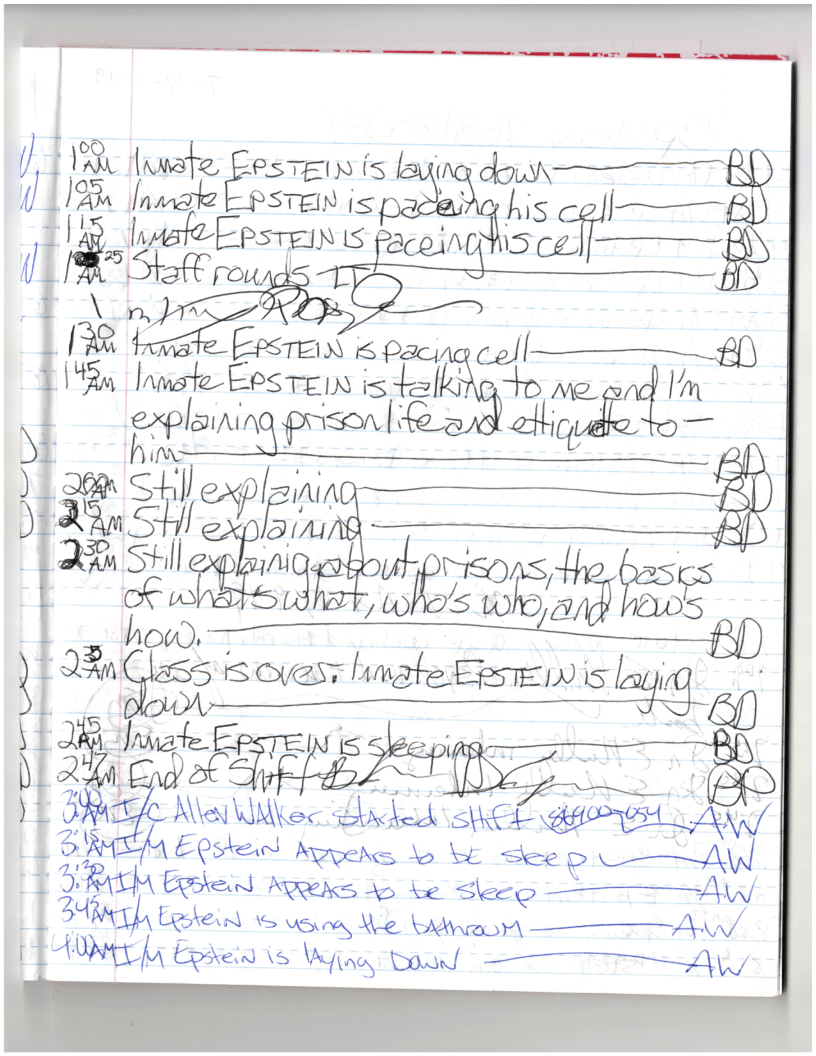 1:00 AM Inmate EPSTEIN is laying down BD
1:05 AM Inmate EPSTEIN is paceing his cell BD
1:15 AM Inmate EPSTEIN is paceing his cell BD
1:25 AM Staff rounds BD
1:30 AM Inmate EPSTEIN is pacing cell BD
1:45 AM Inmate EPSTEIN is talking to me and I'm
explaining prison life and ettiquette to
him BD
2:00 AM Still explaining BD
2:15 AM Still explaining BD
2:30 AM Still explainig about prisons, the basics
of what's what, who's who, and how's
how. BD
2:35 AM Class is over. Inmate EPSTEIN is laying
down BD
2:45 AM Inmate EPSTEIN is sleeping BD
2:47 AM End of Shift BD
3:00 AM I/C Allen WALKER started shift 86900-054 AW
3:15 AM I/M Epstein APPEARS to be sleep AW
3:30 AM I/M Epstein APPEARS to be sleep AW
3:45 AM I/M Epstein is using the bathroom A.W
4:00 AM I/M Epstein is laying Down AW